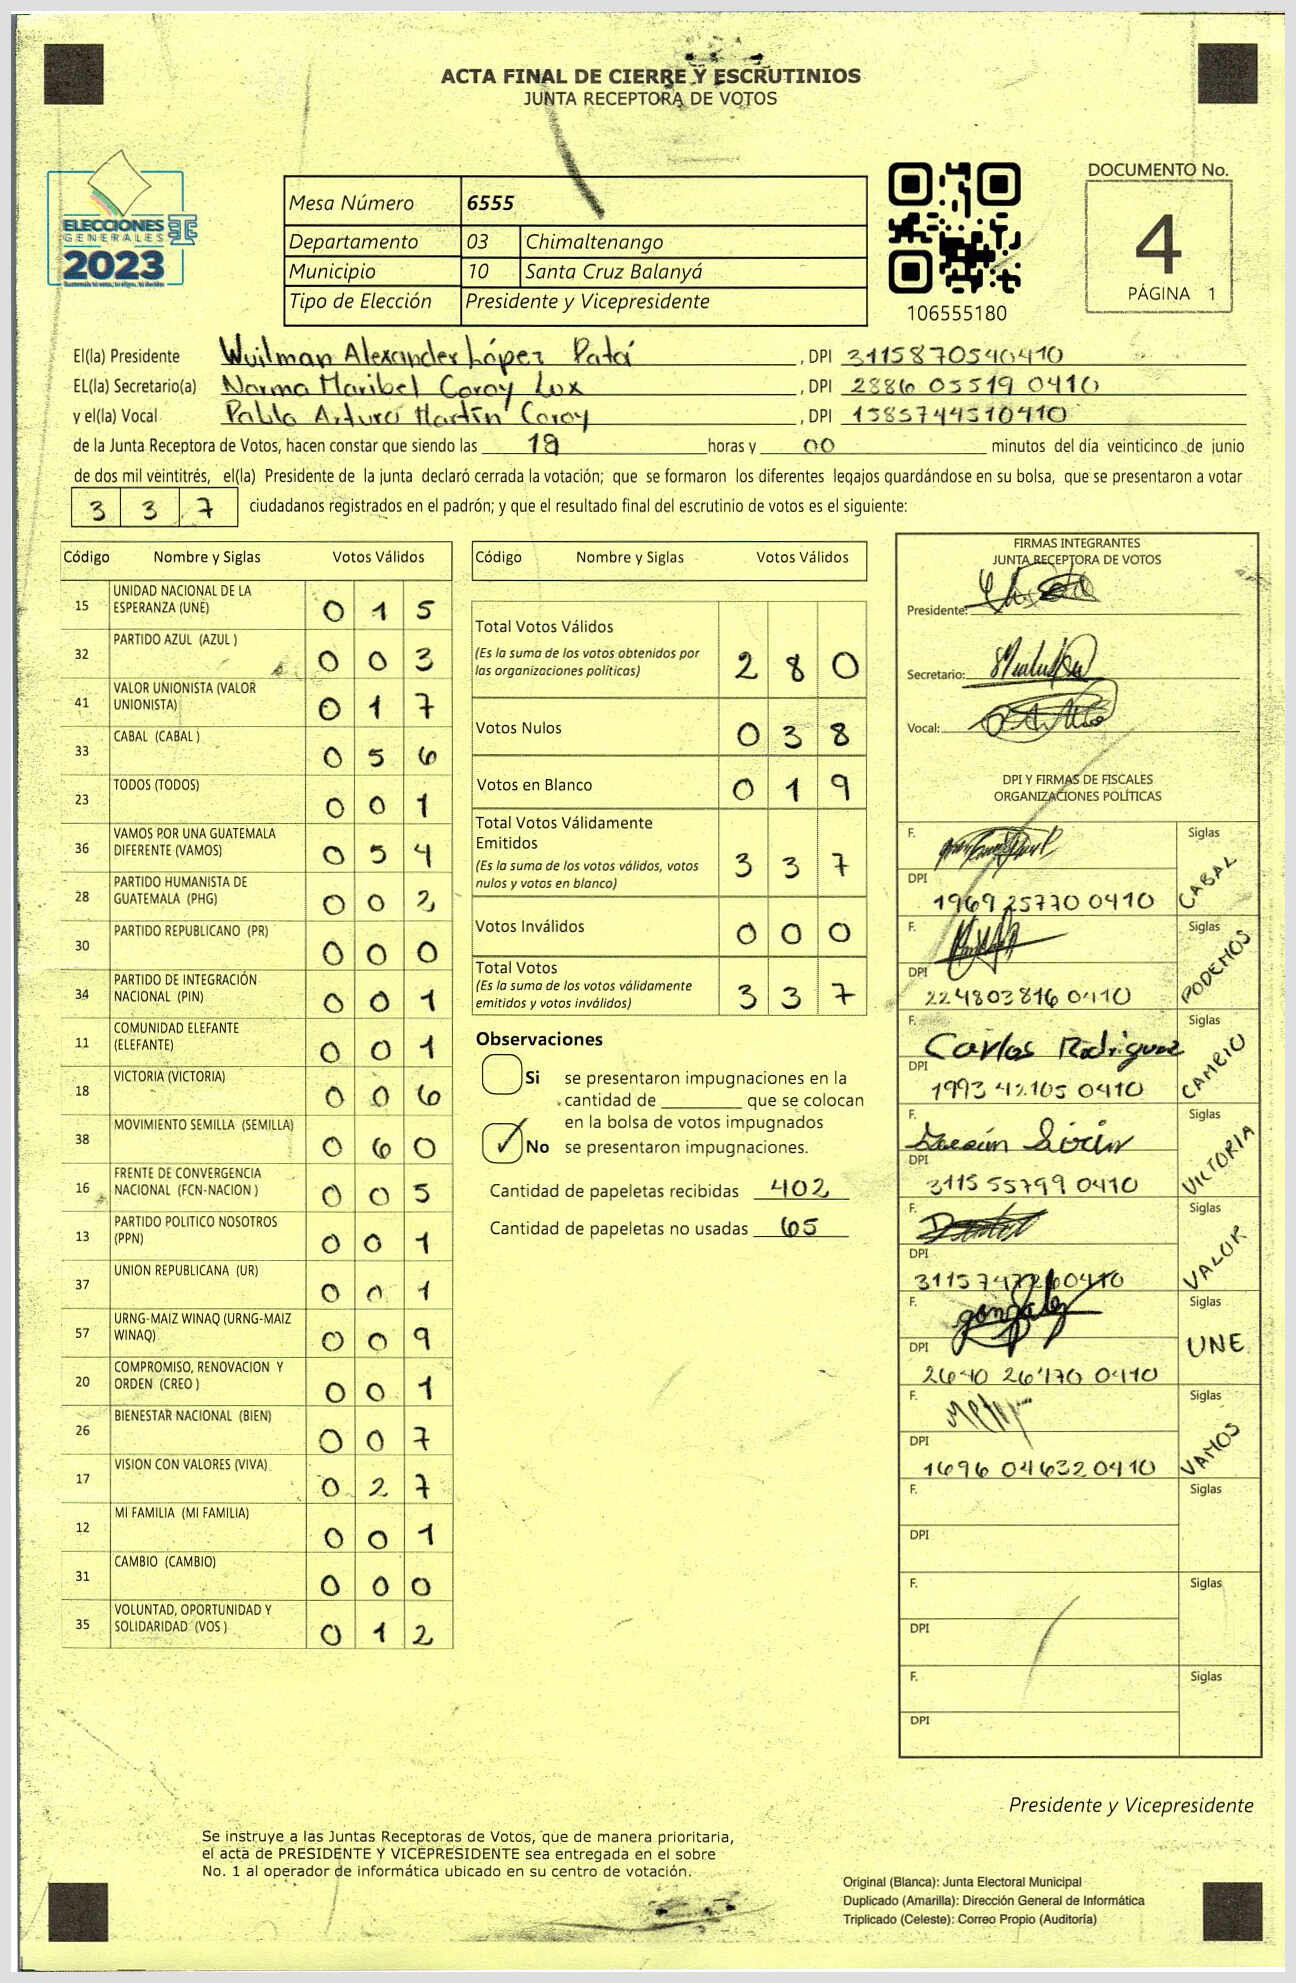 ACTA FINAL DE CIERRE Y ESCRUTINIOS
JUNTA RECEPTORA DE VOTOS
ELECCIONES
GENERALES
2023
Mesa Número 6555
Departamento 03 Chimaltenango
Municipio 10 Santa Cruz Balanyá
Tipo de Elección Presidente y Vicepresidente
106555180
DOCUMENTO No.
4
PÁGINA 1
El(la) Presidente Wuilman Alexander López Patá , DPI 3115870540410
EL(la) Secretario(a) Norma Maribel Coroy Lux , DPI 2886 05519 0410
y el(la) Vocal Pablo Arturo Martín Coroy , DPI 1585744510410
de la Junta Receptora de Votos, hacen constar que siendo las 18 horas y 00 minutos del día veinticinco de junio
de dos mil veintitrés, el(la) Presidente de la junta declaró cerrada la votación; que se formaron los diferentes legajos guardándose en su bolsa, que se presentaron a votar
3 3 7 ciudadanos registrados en el padrón; y que el resultado final del escrutinio de votos es el siguiente:
Código Nombre y Siglas Votos Válidos
15 UNIDAD NACIONAL DE LA ESPERANZA (UNE) 0 1 5
32 PARTIDO AZUL (AZUL ) 0 0 3
41 VALOR UNIONISTA (VALOR UNIONISTA) 0 1 7
33 CABAL (CABAL ) 0 5 6
23 TODOS (TODOS) 0 0 1
36 VAMOS POR UNA GUATEMALA DIFERENTE (VAMOS) 0 5 4
28 PARTIDO HUMANISTA DE GUATEMALA (PHG) 0 0 2
30 PARTIDO REPUBLICANO (PR) 0 0 0
34 PARTIDO DE INTEGRACIÓN NACIONAL (PIN) 0 0 1
11 COMUNIDAD ELEFANTE (ELEFANTE) 0 0 1
18 VICTORIA (VICTORIA) 0 0 6
38 MOVIMIENTO SEMILLA (SEMILLA) 0 6 0
16 FRENTE DE CONVERGENCIA NACIONAL (FCN-NACION ) 0 0 5
13 PARTIDO POLITICO NOSOTROS (PPN) 0 0 1
37 UNION REPUBLICANA (UR) 0 0 1
57 URNG-MAIZ WINAQ (URNG-MAIZ WINAQ) 0 0 9
20 COMPROMISO, RENOVACION Y ORDEN (CREO ) 0 0 1
26 BIENESTAR NACIONAL (BIEN) 0 0 7
17 VISION CON VALORES (VIVA) 0 2 7
12 MI FAMILIA (MI FAMILIA) 0 0 1
31 CAMBIO (CAMBIO) 0 0 0
35 VOLUNTAD, OPORTUNIDAD Y SOLIDARIDAD (VOS ) 0 1 2
Código Nombre y Siglas Votos Válidos
Total Votos Válidos
(Es la suma de los votos obtenidos por
las organizaciones políticas) 2 8 0
Votos Nulos 0 3 8
Votos en Blanco 0 1 9
Total Votos Válidamente
Emitidos
(Es la suma de los votos válidos, votos
nulos y votos en blanco) 3 3 7
Votos Inválidos 0 0 0
Total Votos
(Es la suma de los votos válidamente
emitidos y votos inválidos) 3 3 7
Observaciones
Si se presentaron impugnaciones en la
cantidad de ________ que se colocan
en la bolsa de votos impugnados
No se presentaron impugnaciones.
Cantidad de papeletas recibidas 402
Cantidad de papeletas no usadas 65
FIRMAS INTEGRANTES
JUNTA RECEPTORA DE VOTOS
Presidente:
Secretario:
Vocal:
DPI Y FIRMAS DE FISCALES
ORGANIZACIONES POLÍTICAS
F. Siglas CABAL
DPI 1969 25770 0410
F. Siglas PODEMOS
DPI 224803816 0410
F. Carlos Rodriguez Siglas CAMBIO
DPI 1993 42105 0410
F. Siglas VICTORIA
DPI 3115 55799 0410
F. Siglas VALOR
DPI 3115747260410
F. gonzalez Siglas UNE
DPI 2640 26170 0410
F. Siglas VAMOS
DPI 1696 04632 0410
F. Siglas
DPI
F. Siglas
DPI
F. Siglas
DPI
Presidente y Vicepresidente
Se instruye a las Juntas Receptoras de Votos, que de manera prioritaria,
el acta de PRESIDENTE Y VICEPRESIDENTE sea entregada en el sobre
No. 1 al operador de informática ubicado en su centro de votación.
Original (Blanca): Junta Electoral Municipal
Duplicado (Amarilla): Dirección General de Informática
Triplicado (Celeste): Correo Propio (Auditoría)